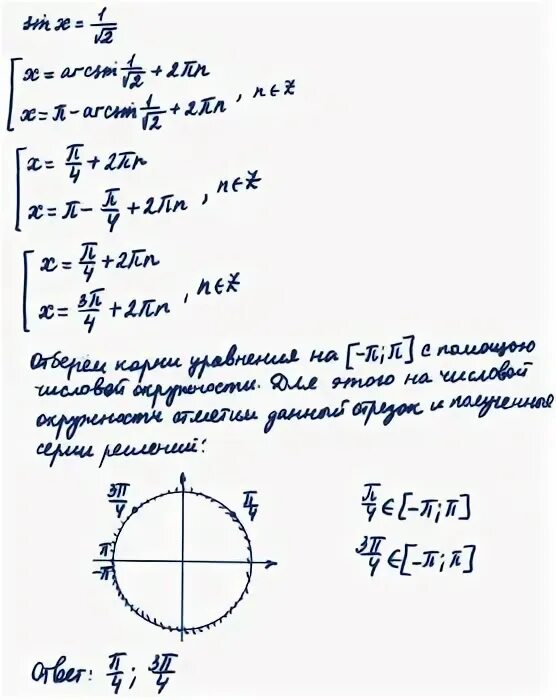 sin x = 1/√2
[ x = arcsin 1/√2 + 2πn
x = π - arcsin 1/√2 + 2πn , n ∈ Z
[ x = π/4 + 2πn
x = π - π/4 + 2πn , n ∈ Z
[ x = π/4 + 2πn
x = 3π/4 + 2πn , n ∈ Z
Отберем корни уравнения на [-π; π] с помощью
числовой окружности. Для этого на числовой
окружности отметим данный отрезок и полученные
серии решений:
3π/4 π/4
π
-π
π/4 ∈ [-π; π]
3π/4 ∈ [-π; π]
Ответ: π/4 ; 3π/4